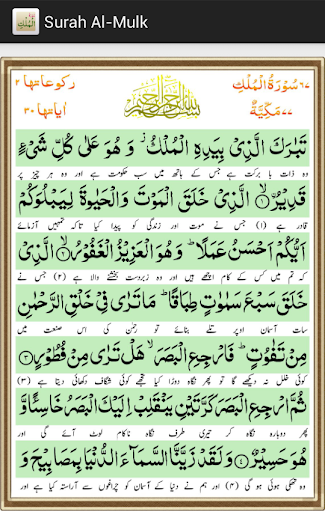 Surah Al-Mulk
٦٧ سُوْرَةُ الْمُلْكِ
مَكِّيَّةٌ ٧٧
بسم الله الرحمن الرحيم
ركوعاتها ٢
اياتها ٣٠
تَبٰرَكَ الَّذِیْ بِیَدِهِ الْمُلْكُ ؗ وَ هُوَ عَلٰی كُلِّ شَیْءٍ
وہ ذات با برکت ہے جس کے ہاتھ میں سب حکومت ہے اور وہ ہر چیز پر
قَدِیْرُ ۙ﴿١﴾ الَّذِیْ خَلَقَ الْمَوْتَ وَ الْحَیٰوةَ لِیَبْلُوَكُمْ
قادر ہے (۱) جس نے موت اور زندگی کو پیدا کیا تاکہ تمہیں آزمائے
اَیُّكُمْ اَحْسَنُ عَمَلًا ؕ وَ هُوَ الْعَزِیْزُ الْغَفُوْرُ ۙ﴿٢﴾ الَّذِیْ
کہ تم میں کس کے کام اچھے ہیں اور وہ زبردست بخشنے والا ہے (۲) جس نے
خَلَقَ سَبْعَ سَمٰوٰتٍ طِبَاقًا ؕ مَا تَرٰی فِیْ خَلْقِ الرَّحْمٰنِ
سات آسمان اوپر تلے بنائے تو رحمٰن کی اس صنعت میں
مِنْ تَفٰوُتٍ ؕ فَارْجِعِ الْبَصَرَ ۙ هَلْ تَرٰی مِنْ فُطُوْرٍ ﴿٣﴾
کوئی خلل نہ دیکھے گا تو پھر نگاہ دوڑا کیا تجھے کوئی شگاف دکھائی دیتا ہے (۳)
ثُمَّ ارْجِعِ الْبَصَرَ كَرَّتَیْنِ یَنْقَلِبْ اِلَیْكَ الْبَصَرُ خَاسِئًا وَّ
پھر دوبارہ نگاہ کر تیری طرف نگاہ ناکام لوٹ آئے گی اور
هُوَ حَسِیْرٌ ﴿٤﴾ وَ لَقَدْ زَیَّنَّا السَّمَآءَ الدُّنْیَا بِمَصَابِیْحَ وَ
وہ تھکی ہوئی ہو گی (۴) اور ہم نے دنیا کے آسمان کو چراغوں سے آراستہ کیا ہے اور